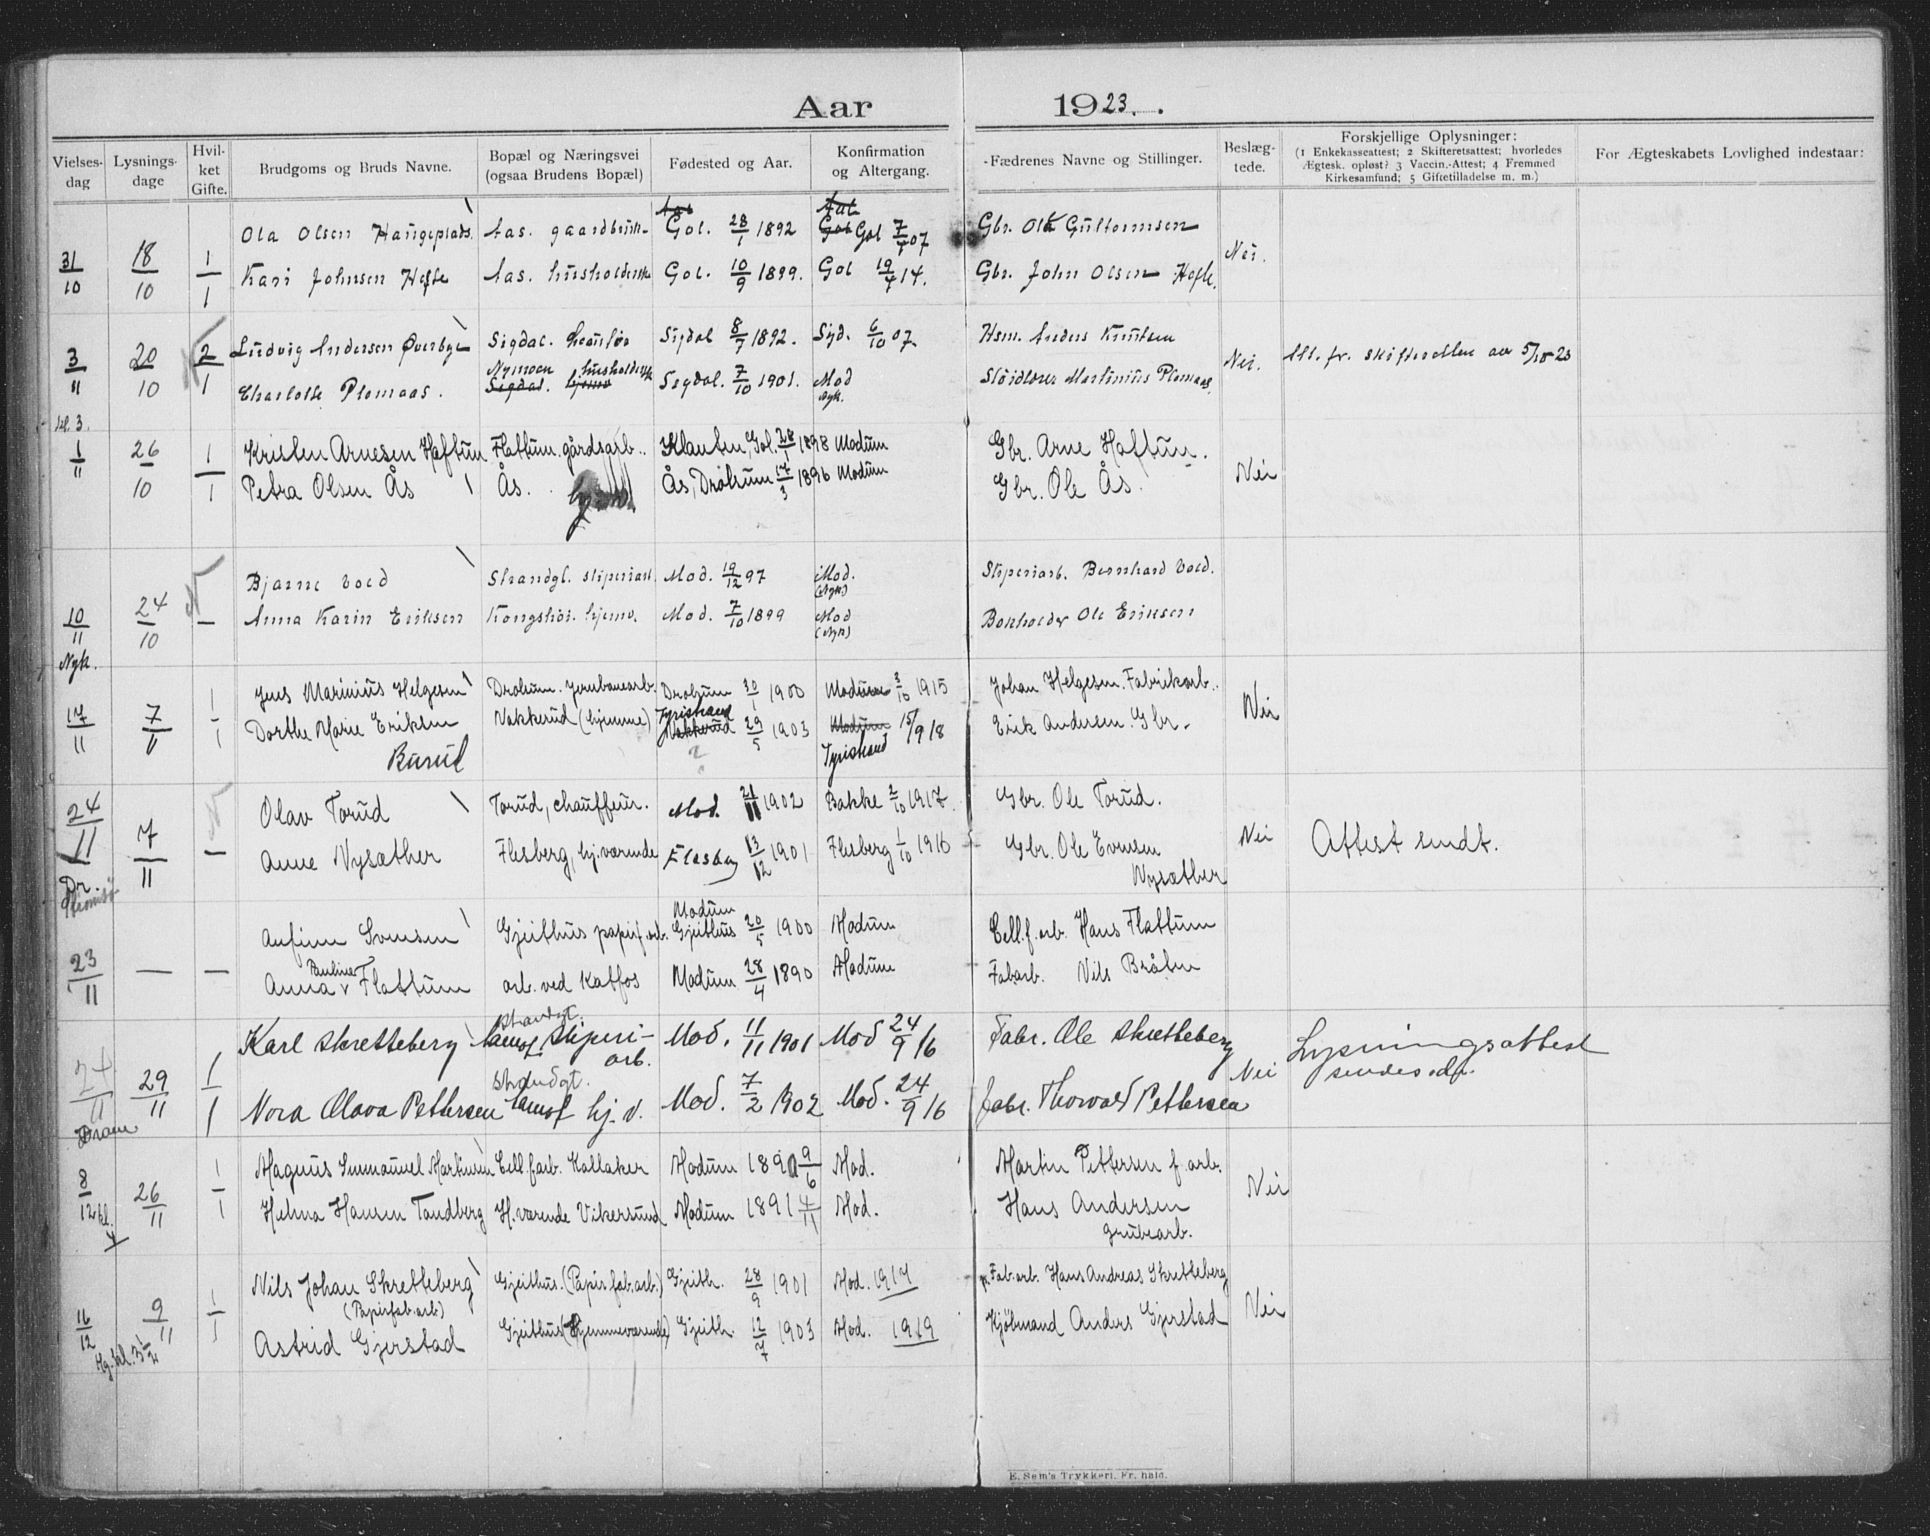 Aar 1923.
Vielses-dag
Lysnings-dage
Hvil-ket Gifte.
Brudgoms og Bruds Navne.
Bopæl og Næringsvei
(ogsaa Brudens Bopæl)
Fødested og Aar.
Konfirmation
og Altergang.
Fædrenes Navne og Stillinger.
Beslæg-tede.
Forskjellige Oplysninger:
(1 Enkekasseattest; 2 Skifteretsattest; hvorledes
Ægtesk. opløst? 3 Vaccin.-Attest; 4 Fremmed
Kirkesamfund; 5 Giftetilladelse m. m.)
For Ægteskabets Lovlighed indestaar:
31/10 18/10 1/1
Ola Olsen Haugeplads. Aas. gaardbruk- Gol. 28/1 1892 Gol 7/7 07 Gbr. Ola Guttormsen
Kari Johnsen Hefte Aas. husholderske Gol. 10/9 1899. Gol 19/7 14. Gbr. John Olsen Hefte. Nei.
3/11 20/10 2/1
Ludvig Andersen Øverbye Sigdal. Sigdal 8/7 1892. Sigd. 6/10 07. Hsm. Anders Knutsen
Charlotte Plomaas. Nymoen husholdersk Sigdal. hjeme Sigdal. 7/10 1901. Mod Nyk. Sløidlærer Martinius Plomaas. Nei. Att. fr. skifteretten av 5/10-23
kl. 3.
1/11 26/10 1/1
Kristen Arnesen Haftun Flattum. gårdsarb.. Klauten, Gol. 28/1 1898 Modum Gbr. Arne Haftun.
Petra Olsen Ås Ås. Ås, Drolsum 17/3 1896 Modum Gbr. Ole Ås. Nei
10/11 Nyk. 24/10 —
Bjarne Voed Strandgt. sliperiarb. Mod. 19/12 97 Mod. (Nyk) Sliperiarb. Bernhard Voed.
Anna Karin Eriksen Kongsfos. hjemv. Mod. 7/10 1899 Mod (Nyk) Bokholder Ole Eriksen
17/11 7/11 1/1
Jens Marinius Helgesen Drolsum. Jernbanearb. Drolsum 30/1 1900 Modum 3/10 1915 Johan Helgesen. Fabrikarb..
Dorthe Marie Eriksen Burud Vakkerud (hjemme) Tyristrand Vakkerud 29/5 1903 Modum 15/9 18 Tyristrand Erik Andersen. Gbr. Nei
24/11 Dr. Strømsö 7/11 —
Olav Torud Torud, chauffeur. Mod. 21/11 1902 Bakke 2/10 1917. Gbr. Ole Torud.
Anne Nysæther Flesberg, hj.værende Flesbg 13/12 1901 Flesberg 1/10 1916 Gbr. Ole Evensen Nysæther Nei Attest sendt.
23/11 — —
Anfinn Svensen Gjeithus papirf.arb. Modum Gjeithus 20/5 1900 Modum Cell.f.arb. Hans Flattum
Anna Pauline Flattum arb. ved Katfos Modum 28/4 1890 Modum Fabarb. Nils Bråten
24/11 Dram 29/11 1/1
Karl Skretteberg Strandgt. sliperi-arb. Mod. 11/11 1901 Mod 24/9 16 Fabr. Ole Skretteberg Lysningsattest
Nora Olava Pettersen Strandgt. hj. v. Mod. 7/2 1902 Mod. 24/9 16 fabr. Thorvald Pettersen Nei sendes d.p.
8/12 kl. 4 26/11 1/1
Magnus Immanuel Martinsen Cell.f.arb. Kallaker Modum 1890 9/6 Mod. Martin Pettersen f. arb.
Helma Hansen Tandberg H.værende Vikersund Modum 1891 4/11 Mod. Hans Andersen grubearb. Nei
16/12 Hg. kl. 3 1/2 9/11 1/1
Nils Johan Skretteberg (Papirfab.arb) Gjeithus. (Papirfab.arb.) Gjeith. 28/9 1901 Mod. 1917 p.Fab.arb. Hans Andreas Skretteberg
Astrid Gjerstad Gjeithus (Hjemmeværende) Gjeith. 12/7 1903 Mod. 1919 Kjøbmand Anders Gjerstad Nei
E. Sem's Trykkeri, Fr. hald.